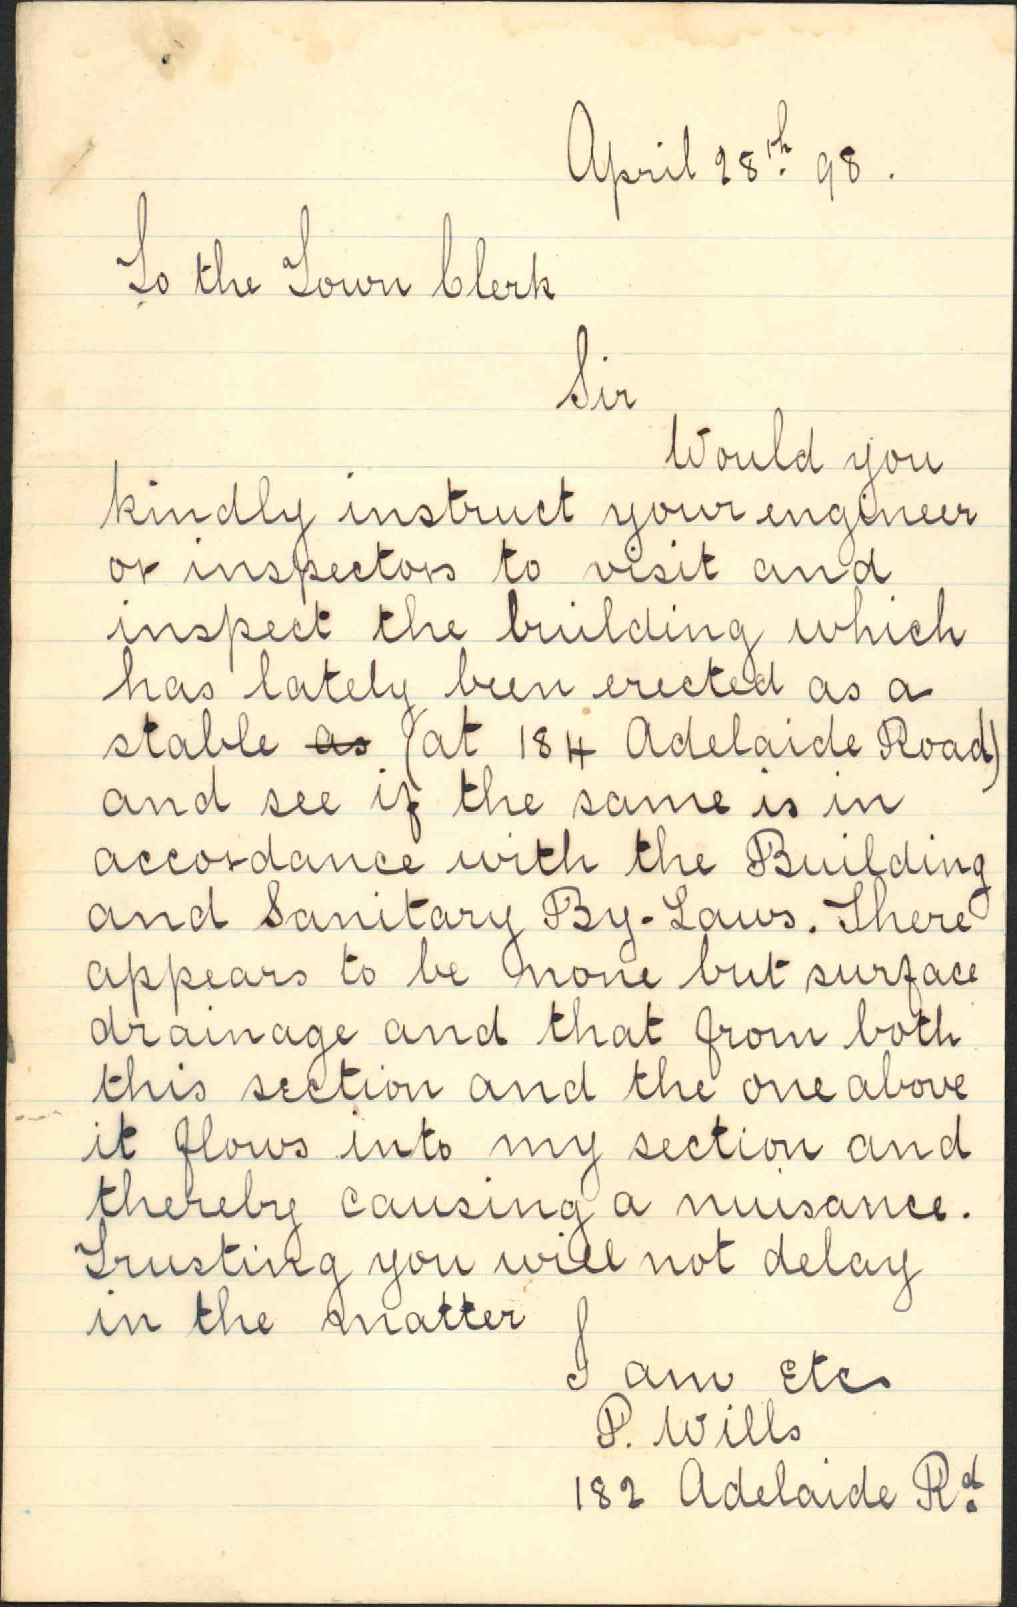 April 28th. 98.
To the Town Clerk
Sir
Would you
kindly instruct your engineer
or inspectors to visit and
inspect the building which
has lately been erected as a
stable as (at 184 Adelaide Road)
and see if the same is in
accordance with the Building
and Sanitary By-Laws. There
appears to be none but surface
drainage and that from both
this section and the one above
it flows into my section and
thereby causing a nuisance.
Trusting you will not delay
in the matter
I am Etc
P. Wills
182 Adelaide Rd.